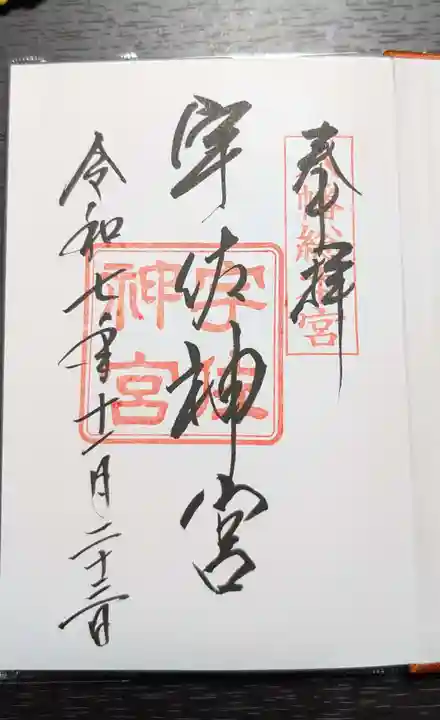 奉拝
八幡総本宮
宇佐神宮
宇佐神宮
令和七年十一月二十三日